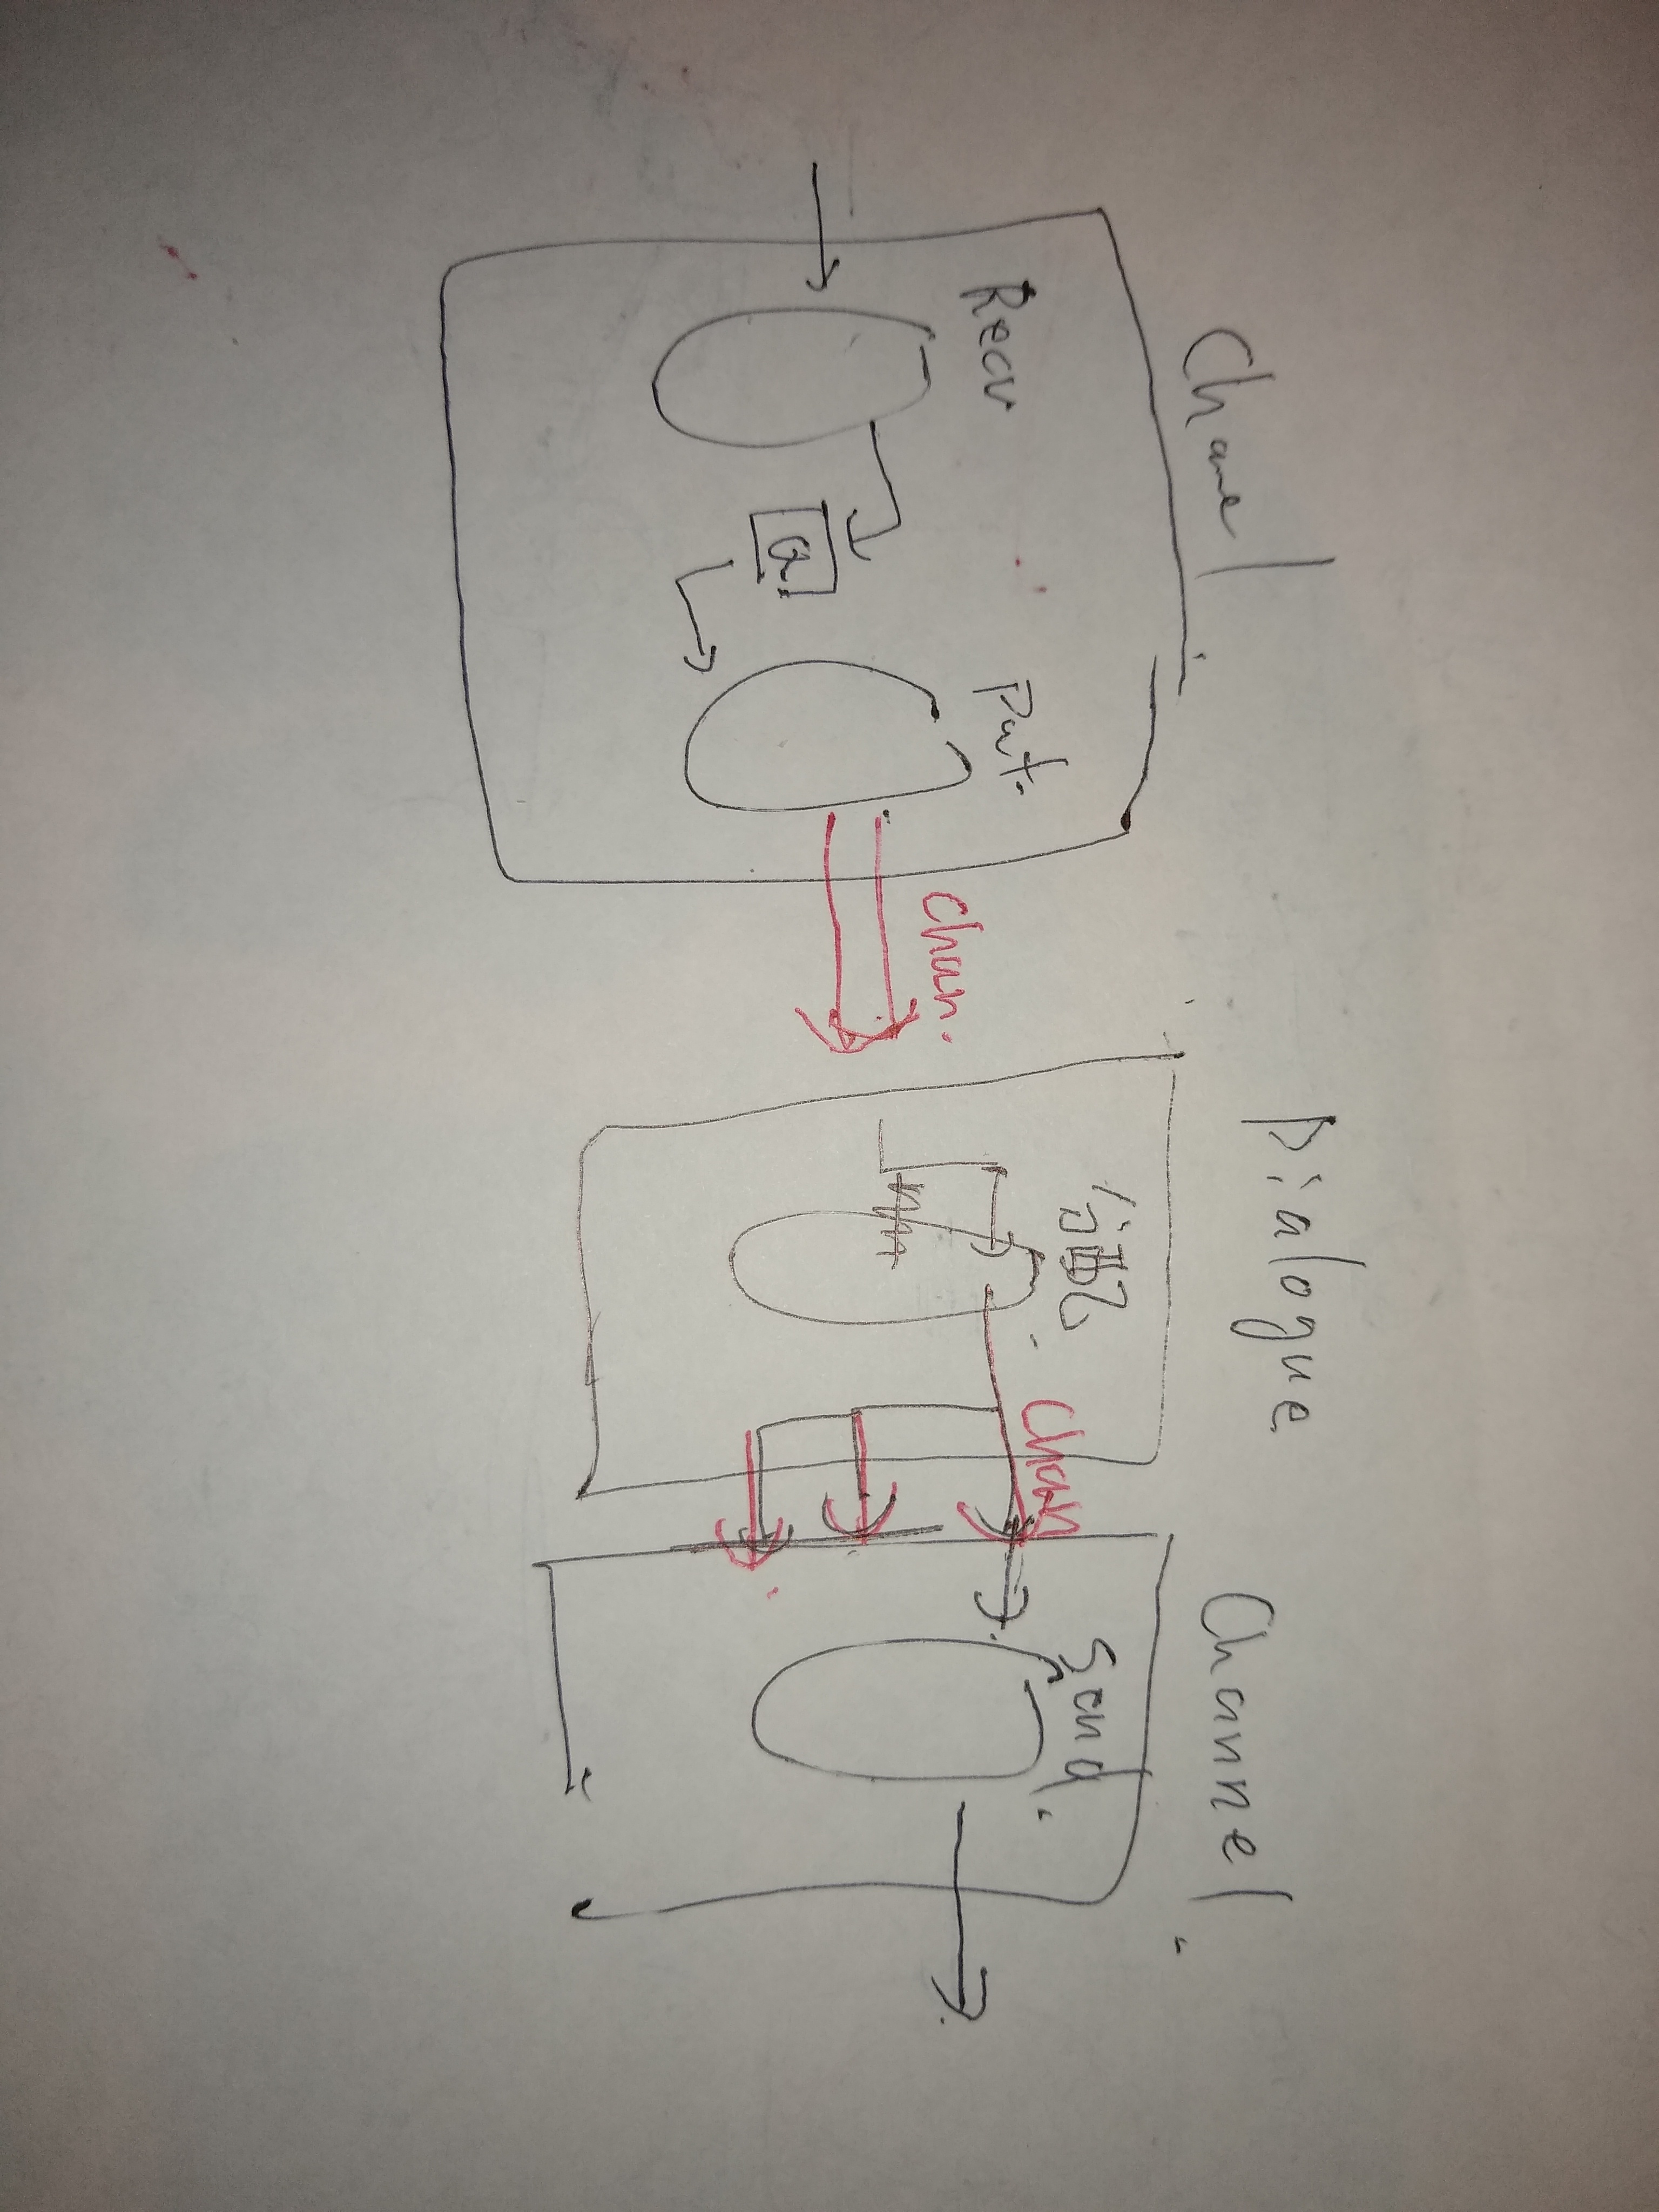 Channel
Recv
Q
Put.
Chan.
Dialogue
分配.
Chan
Channel.
Send.